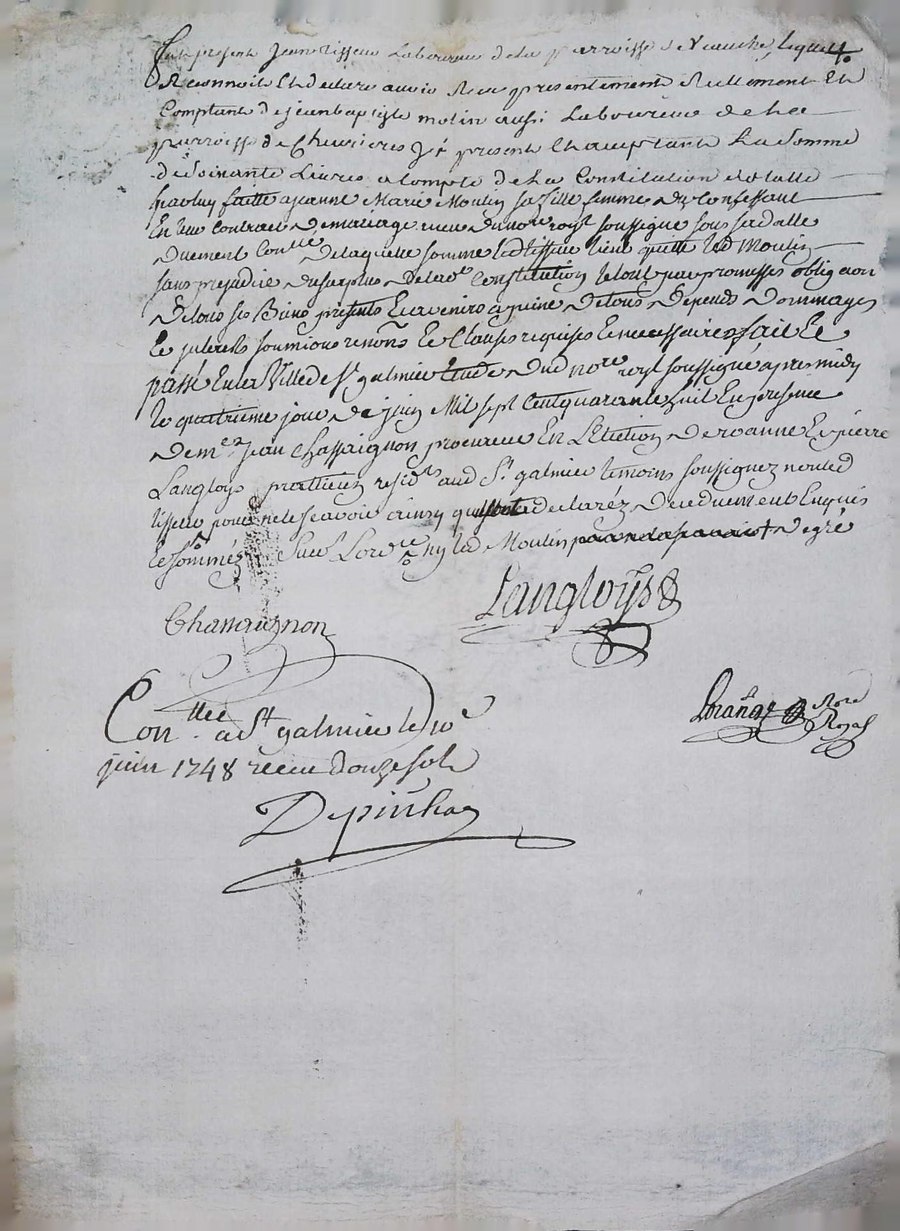 fut present Jean Tisseur Laboureur de la parroisse de Veauche, lequel
Reconnoit et declare avoir Receu presentement Reellement Et
Comptant de jean baptiste molin aussi Laboureur de La
parroisse de Chevrieres Jcy present et acceptant La Somme
de Soixante Livres a Compte de La Constitution dotalle
par luy faitte a jeanne Marie Moulin sa fille femme du Confessant
En leur contract de mariage receu du nore royl soussigné sous sa datte
Duement Conllé De laquelle somme led tisseur tient quitte led Moulin
sans prejudice du surplus de lade Constitution le tout par promesses obligaon
De tous ses Biens presents Et avenirs a peine de tous Depends Dommages
Et interets soumions renons Et Clauses requises Et necessaires fait Et
passé En la Ville de St galmier Etude dud nore royl soussigné apres midy
le quatrieme jour De juin Mil sept Cent quarante huit En presence
De me jean Chassaignon procureur En L'Election De roanne Et pierre
Langloys pratticien residt aud St galmier temoins soussignez non led
tisseur pour ne le scavoir ainsy qu'il a declarez De ce duement Enquis
Et sommé ny led Moulin De gré
Langloys
Chassaignon
Conllé a St galmier le
juin 1748 receu douze sols
Nore
Royal
Depinhac